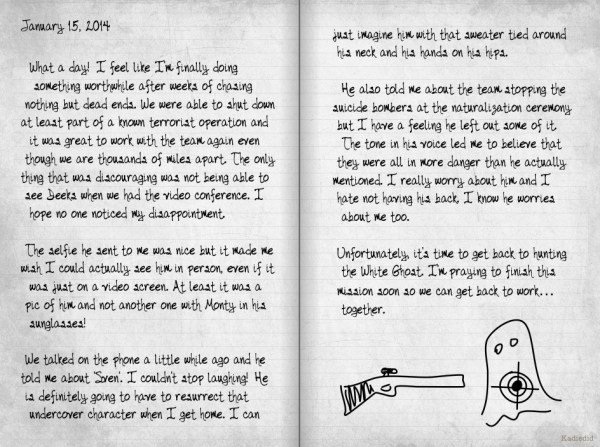 January 15, 2014
What a day! I feel like I'm finally doing
something worthwhile after weeks of chasing
nothing but dead ends. We were able to shut down
at least part of a known terrorist operation and
it was great to work with the team again even
though we are thousands of miles apart. The only
thing that was discouraging was not being able to
see Deeks when we had the video conference. I
hope no one noticed my disappointment.
The selfie he sent to me was nice but it made me
wish I could actually see him in person, even if it
was just on a video screen. At least it was a
pic of him and not another one with Monty in his
sunglasses!
We talked on the phone a little while ago and he
told me about 'Sven'. I couldn't stop laughing! He
is definitely going to have to resurrect that
undercover character when I get home. I can
just imagine him with that sweater tied around
his neck and his hands on his hips.
He also told me about the team stopping the
suicide bombers at the naturalization ceremony
but I have a feeling he left out some of it.
The tone in his voice led me to believe that
they were all in more danger than he actually
mentioned. I really worry about him and I
hate not having his back, I know he worries
about me too.
Unfortunately, it's time to get back to hunting
the White Ghost. I'm praying to finish this
mission soon so we can get back to work...
together.
Kadiedid